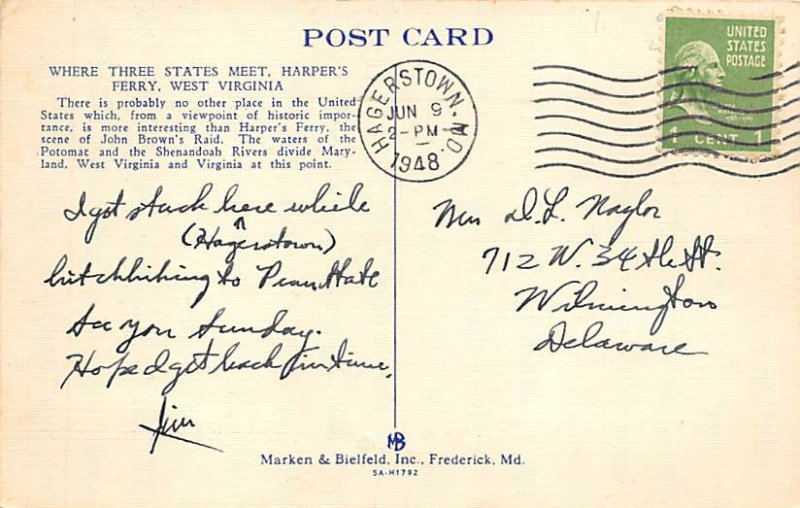 POST CARD
WHERE THREE STATES MEET, HARPER'S
FERRY, WEST VIRGINIA
There is probably no other place in the United
States which, from a viewpoint of historic impor-
tance, is more interesting than Harper's Ferry, the
scene of John Brown's Raid. The waters of the
Potomac and the Shenandoah Rivers divide Mary-
land, West Virginia and Virginia at this point.
HAGERSTOWN, MD.
JUN 9
2-PM
1948
UNITED
STATES
POSTAGE
1 CENT 1
I got stuck here while
(Hagerstown)
hitchhiking to Penn State
See you Sunday.
Hope I get back in time.
Jim
Mrs D. L. Naylor
712 W. 34th St.
Wilmington
Delaware
MB
Marken & Bielfeld, Inc., Frederick, Md.
5A-H1792